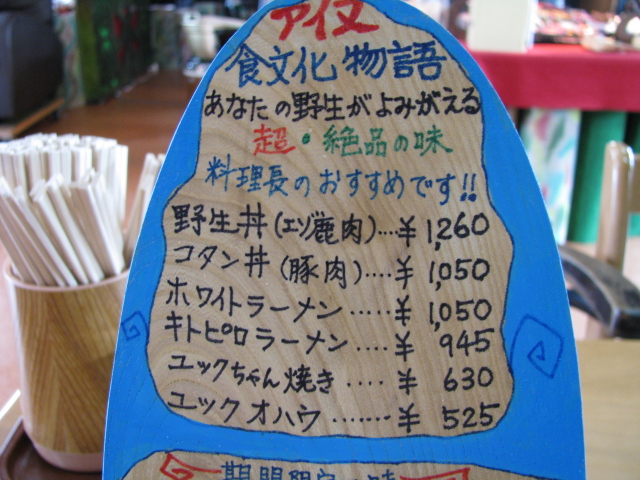 アイヌ
食文化物語
あなたの野生がよみがえる
超・絶品の味
料理長のおすすめです!!
野生丼(エゾ鹿肉)...¥1,260
コタン丼(豚肉)....¥1,050
ホワイトラーメン.....¥1,050
キトピロラーメン....¥945
ユックちゃん焼き....¥630
ユックオハウ.......¥525
期間限定の味